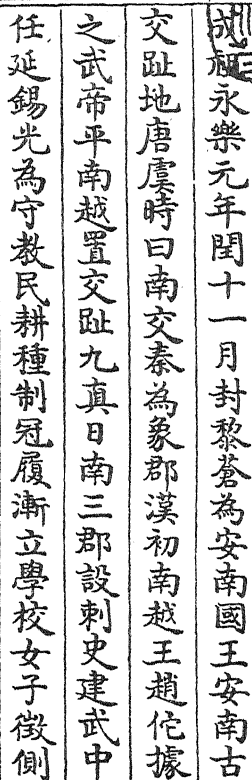 成祖永樂元年閏十一月封黎蒼為安南國王安南古
交趾地唐虞時曰南交秦為象郡漢初南越王趙佗據
之武帝平南越置交趾九真日南三郡設刺史建武中
任延錫光為守教民耕種制冠履漸立學校女子徵側